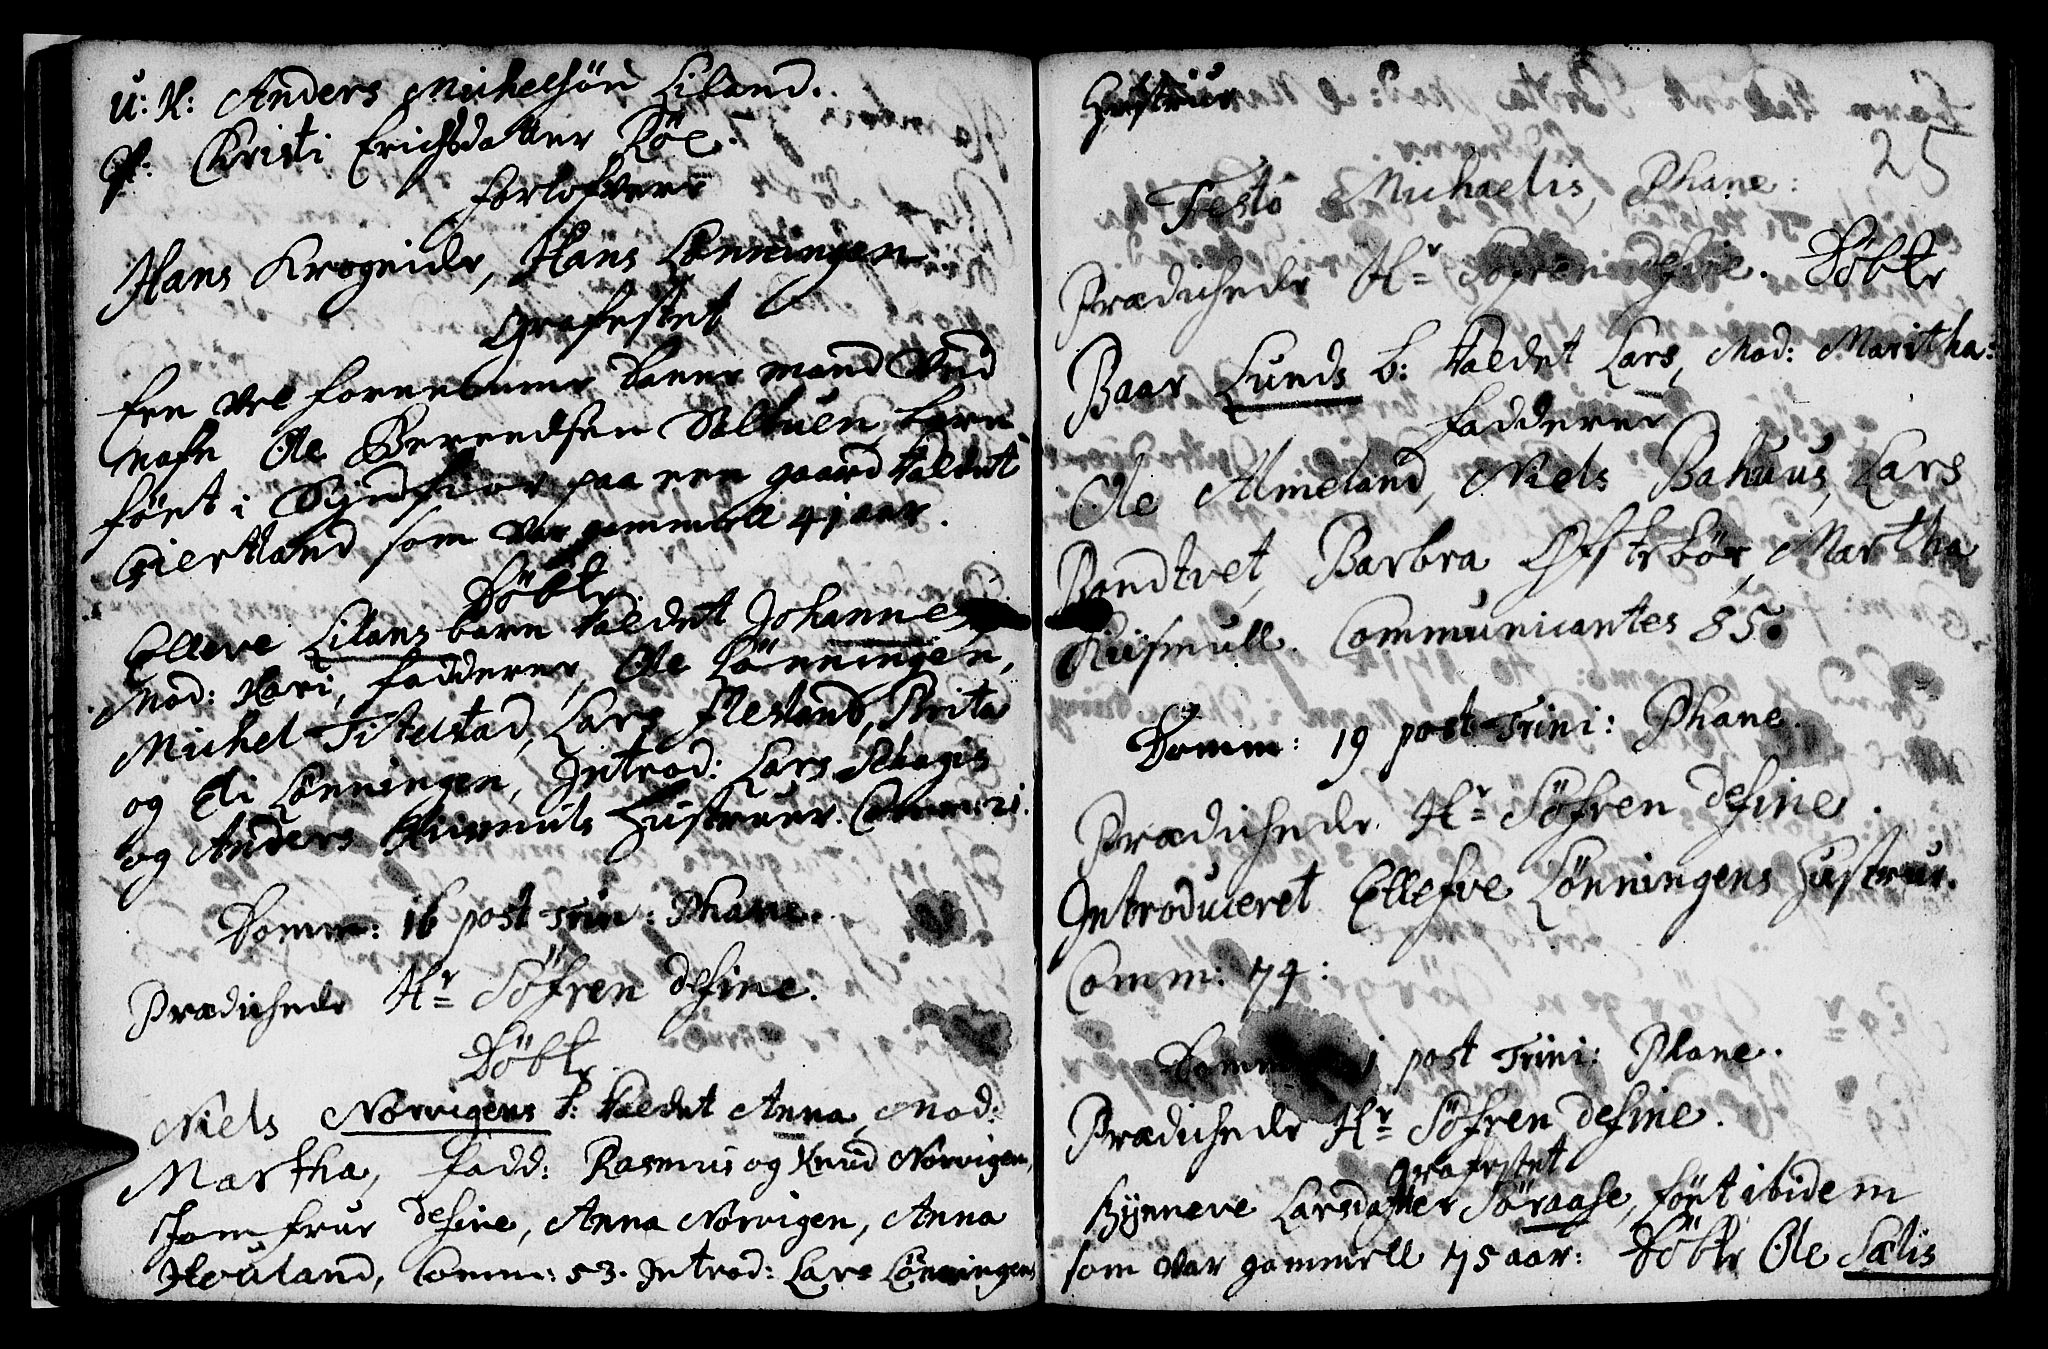 U: K: Anders Michelsön Liland.
P: Christi Erichsdatter Röe.
forlofvere
Hans Krogeide, Hans Lönningen
Grafestet
Een vel fornemme Daner mand ved
nafn Ole Berendsen baren
föet i Syndfior paa een gaard kaldet
Giertland som var gammell 41 aar.
Döbte
Elleve Lilans barn kaldet Johannes
Mod: Kari, fadderer, Ole Lönningen,
Michel Titelstad, Lars Flesland, Brita
og Eli Lönningen, Introd: Lars
og Anders Hustruer. Comm: 21.
Domm: 16 post Trin: Phane.
Prædichede Hr Söfren define.
Döbte
Niels Norvigens b: kaldet Anna, Mod:
Martha, fadd: Rasmus og Knud Norvigen,
Jomfrur define, Anna Norvigen, Anna
Houland, Comm: 53. Introd: Lars Lönningens
Hustrue
25
Festo Michaelis, Phane:
Prædichede Hr Söfren define. Döbte
Baar Lunds b: kaldet Lars, Mod: Maritha:
fadderer
Ole Almeland, Niels Bahuus, Lars
Bondtvet, Barbra Øfstebör, Martha
Riismull. Communicantes 85.
Domm: 19 post Trini: Phane.
Prædichede Hr Söfren define.
Introduceret Ellefve Lönningens Hustrue.
Comm: 74:
Domm 1 post Trini: Phane.
Prædichede Hr Söfren define.
Grafestet
Synneve Larsdatter Söraase, föet ibidem
som var gammell 75 aar: Döbte Ole Sælis